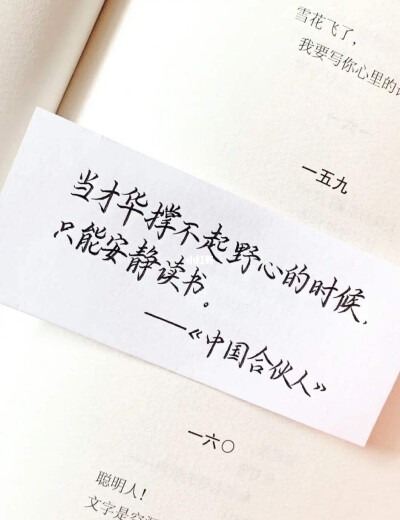 雪花飞了，
我要写你心里的
一五九
当才华撑不起野心的时候，
只能安静读书。
——《中国合伙人》
一六〇
聪明人！
文字是空